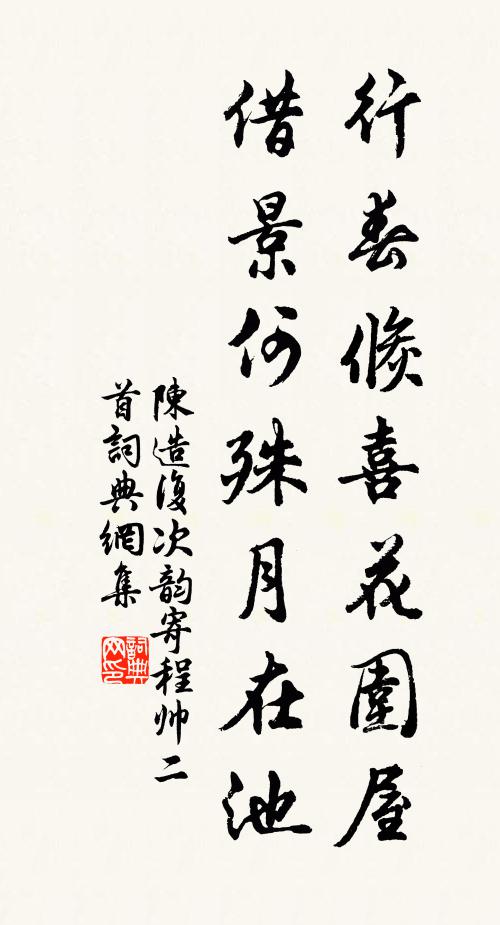 行春倏喜花圍屋
借景何殊月在池
陳造復次韵寄程帅二
首詞典網集
詞典網印